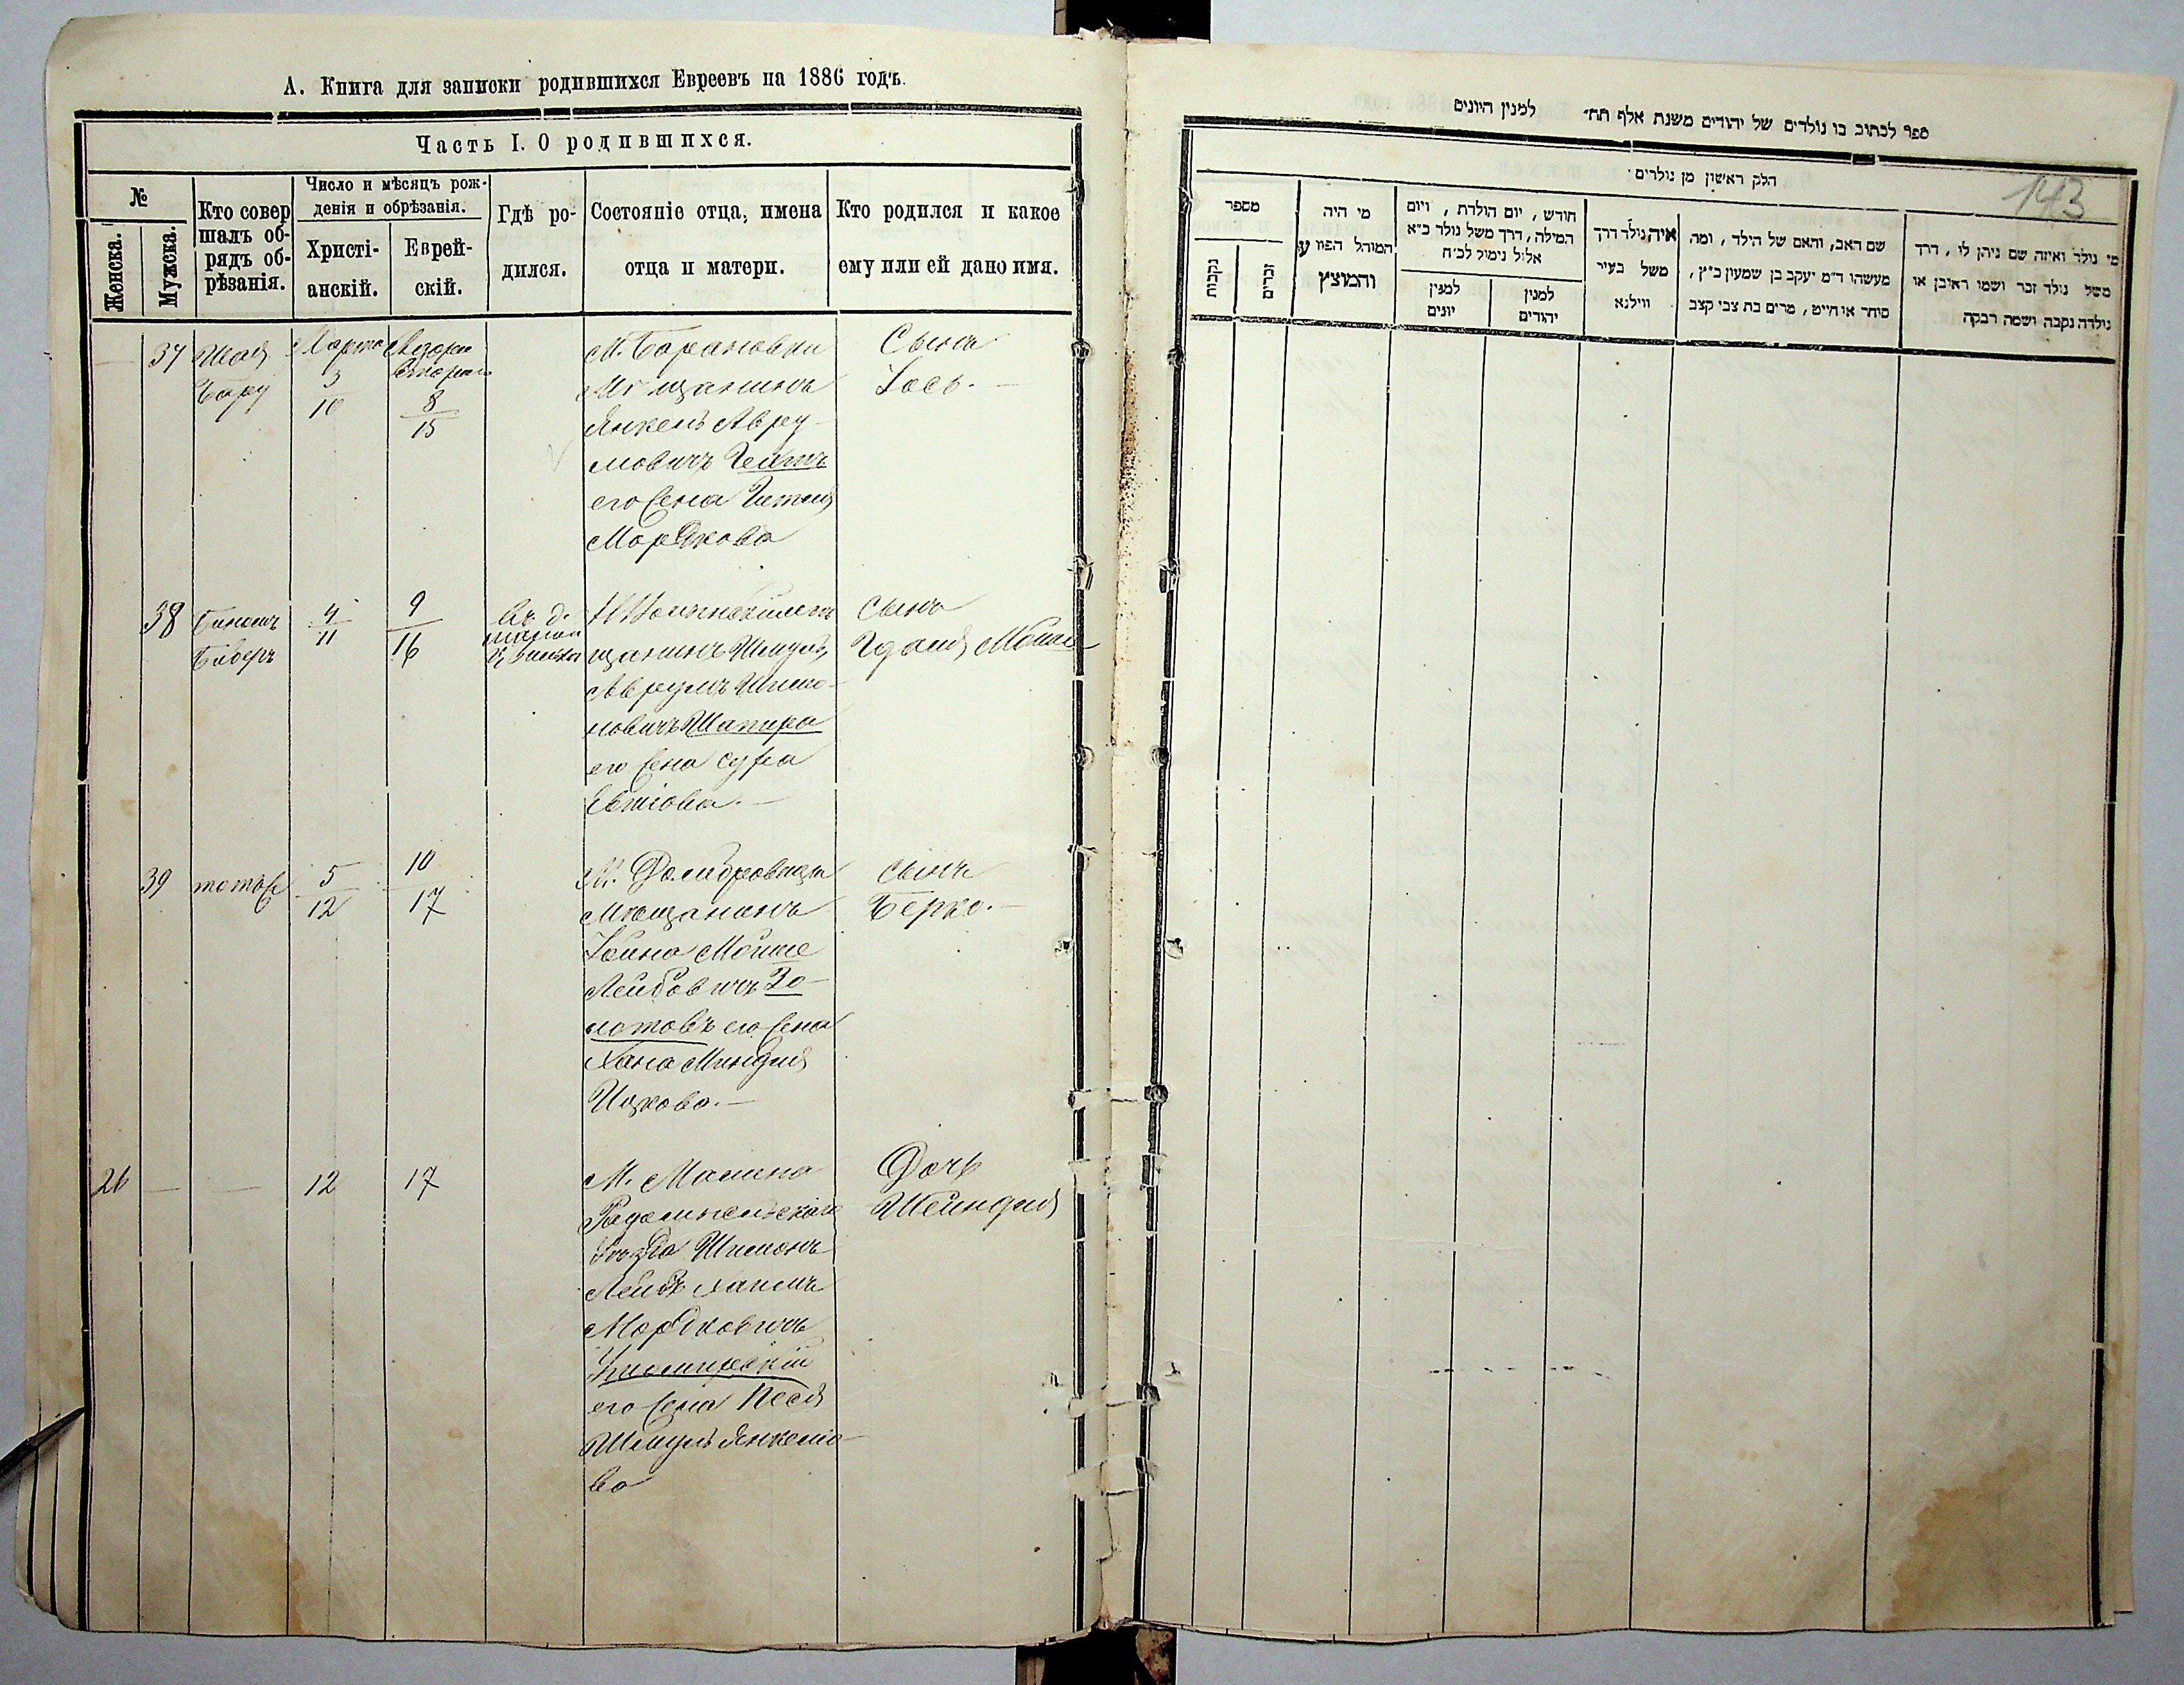 А. Книга для записки родившихся Евреевъ на 1886 годъ.
Часть I. О родившихся.
№
Женска.
Мужска.
Кто совер
шалъ об-
рядъ об-
рѣзанія.
Число и мѣсяцъ рож-
денія и обрѣзанія.
Христі-
анскій.
Еврей-
скій.
Гдѣ ро-
дился.
Состояніе отца, имена
отца и матери.
Кто родился и какое
ему или ей дано имя.
37
Марта
3
10
8
15
М. Барановки
Мѣщанинъ
Янкель Авру-
мовичъ
его жена
Мордкова
Сынъ
Іось.
38
4
11
9
16
въ д.
щанинъ Шмуль
Аврумъ Шимо-
новичъ Шапира
его жена сура
сынъ
Мойше
39
тотъ же
5
12
10
17
М. Домбровица
Мѣщанинъ
Мойше
Лейбовичъ Зо-
лотовъ его жена
Хана Миндля
Ицкова.
сынъ
Берко.
26
12
17
М. Малина
Радомысльскаго
уѣзда Шимонъ
Лейбъ Хаимъ
Мордковичъ
его жена Песя
Шмуль Янкелιο-
ва
Дочь
Шейндля
ספר לכתוב בו נולדים של יהודים משנת אלף תת׳ למנין היונים
143
חלק ראשון מן נולדים
מספר
נקבות
זכרים
מי היה
המוהל הפורע
והמוצץ
חודש, יום הולדת, ויום
המילה, דרך משל נולד כ״א
אלול נימול לכ״ח
למנין
יונים
למנין
יהודים
איה נולד דרך
משל בעיר
ווילנא
שם האב, והאם של הילד, ומה
מעשהו ד״מ יעקב בן שמעון כ״ץ,
סוחר או חייט, מרים בת צבי קצב
מי נולד ואיזה שם ניתן לו, דרך
משל נולד זכר ושמו ראובן או
נולדה נקבה ושמה רבקה